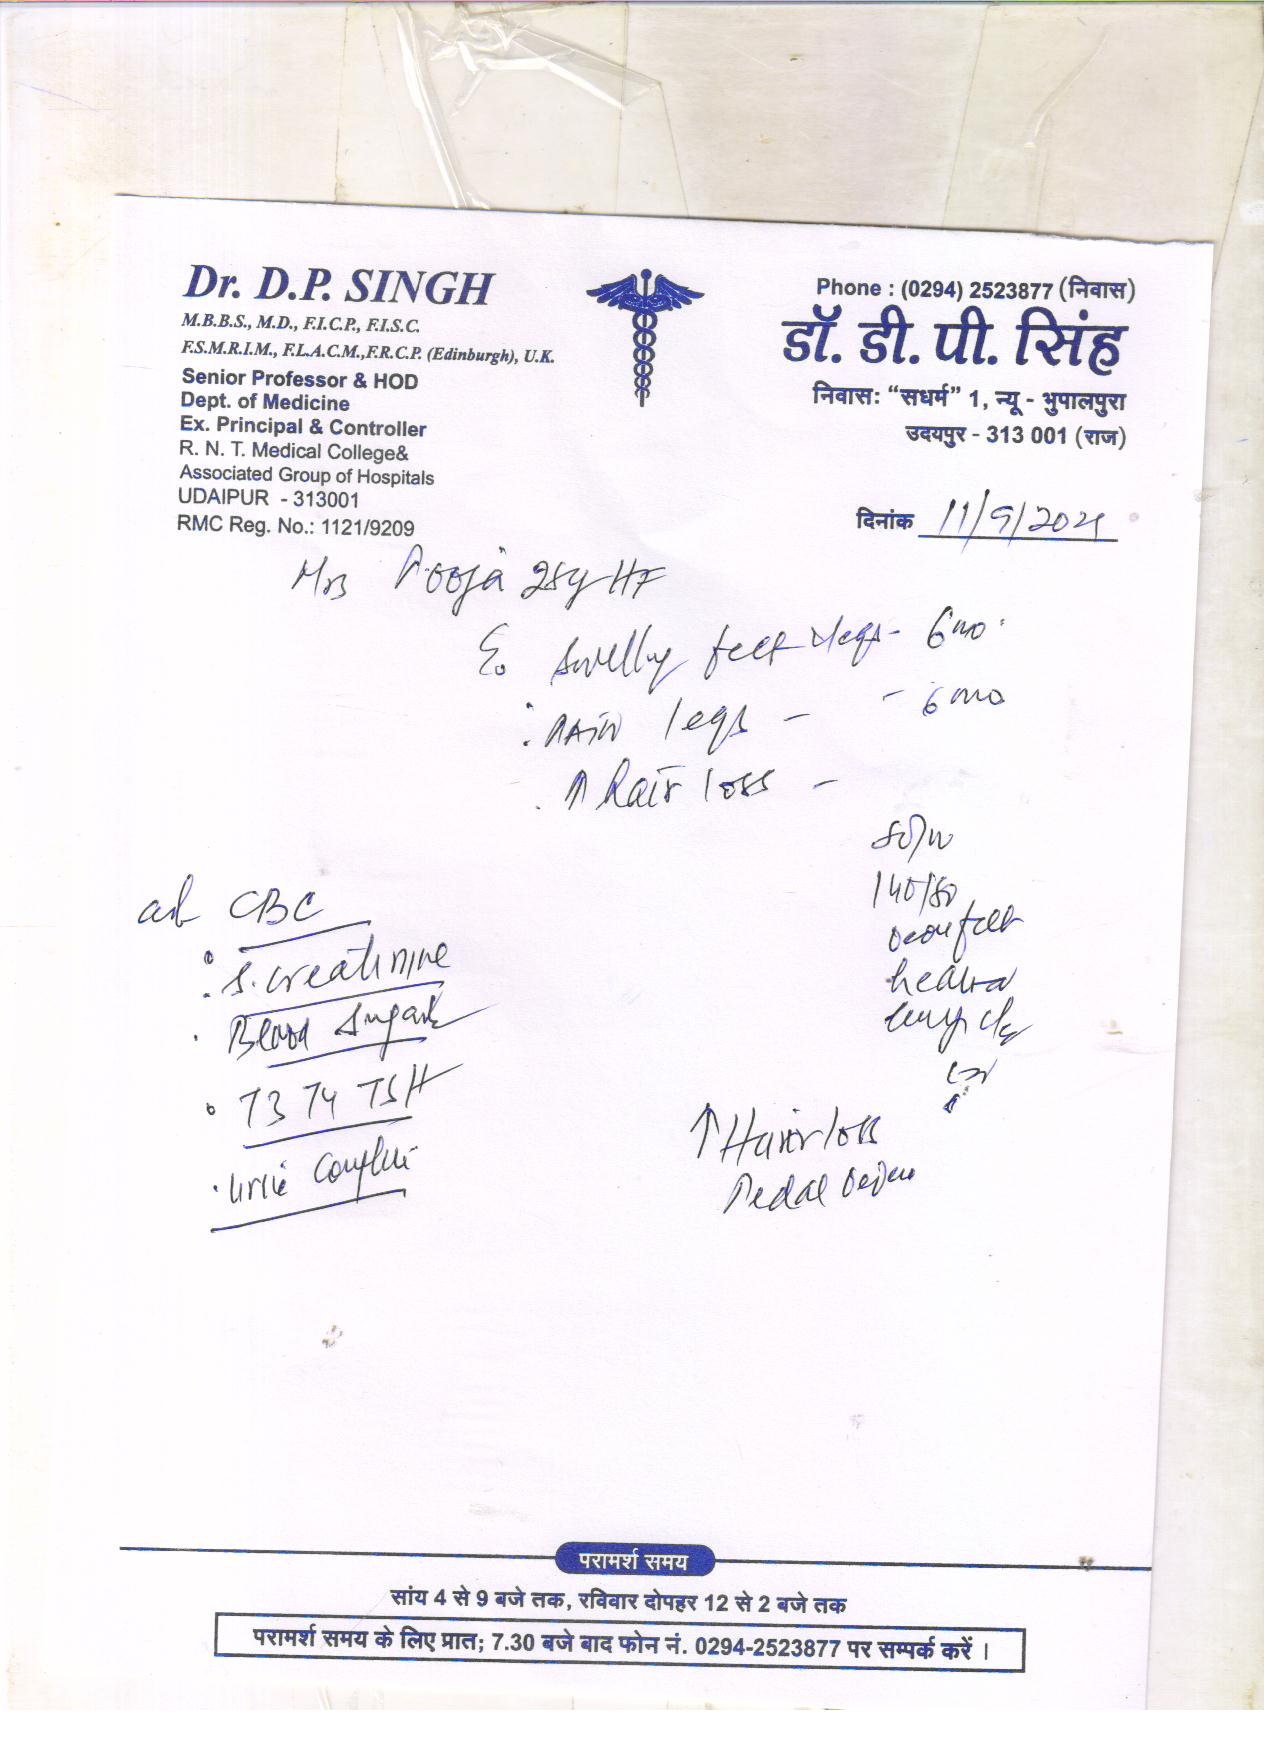 Dr. D.P. SINGH
M.B.B.S., M.D., F.I.C.P., F.I.S.C.
F.S.M.R.I.M., F.L.A.C.M.,F.R.C.P. (Edinburgh), U.K.
Senior Professor & HOD
Dept. of Medicine
Ex. Principal & Controller
R. N. T. Medical College&
Associated Group of Hospitals
UDAIPUR - 313001
RMC Reg. No.: 1121/9209
Phone : (0294) 2523877 (निवास)
डॉ. डी. पी. सिंह
निवास: “सधर्म” 1, न्यू - भुपालपुरा
उदयपुर - 313 001 (राज)
दिनांक 11/9/2021
Mrs Pooja 28y HF
swelling feet legs - 6 mo.
: PAIN legs - - 6 mo
. ↑ hair loss -
140/80
CBC
: S. creatinine
. Blood Sugar
. T3 T4 TSH
. Urine Complete
↑ Hair loss
Pedal
परामर्श समय
सांय 4 से 9 बजे तक, रविवार दोपहर 12 से 2 बजे तक
परामर्श समय के लिए प्रात; 7.30 बजे बाद फोन नं. 0294-2523877 पर सम्पर्क करें ।